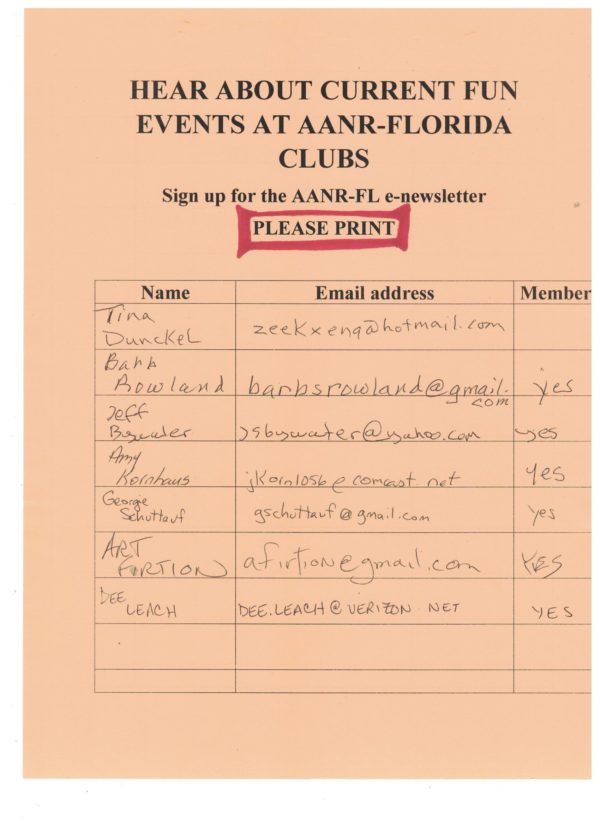 HEAR ABOUT CURRENT FUN
EVENTS AT AANR-FLORIDA
CLUBS
Sign up for the AANR-FL e-newsletter
PLEASE PRINT
Name Email address Member
Tina
Dunckel zeekxenq@hotmail.com
Barb
Rowland barbsrowland@gmail.
com yes
Jeff
Bywater jsbywater@yahoo.com yes
Amy
Kornhaus jkorn1056@comcast.net yes
George
Schuttauf gschuttauf@gmail.com yes
ART
FIRTION afirtion@gmail.com YES
DEE
LEACH DEE.LEACH@VERIZON.NET YES